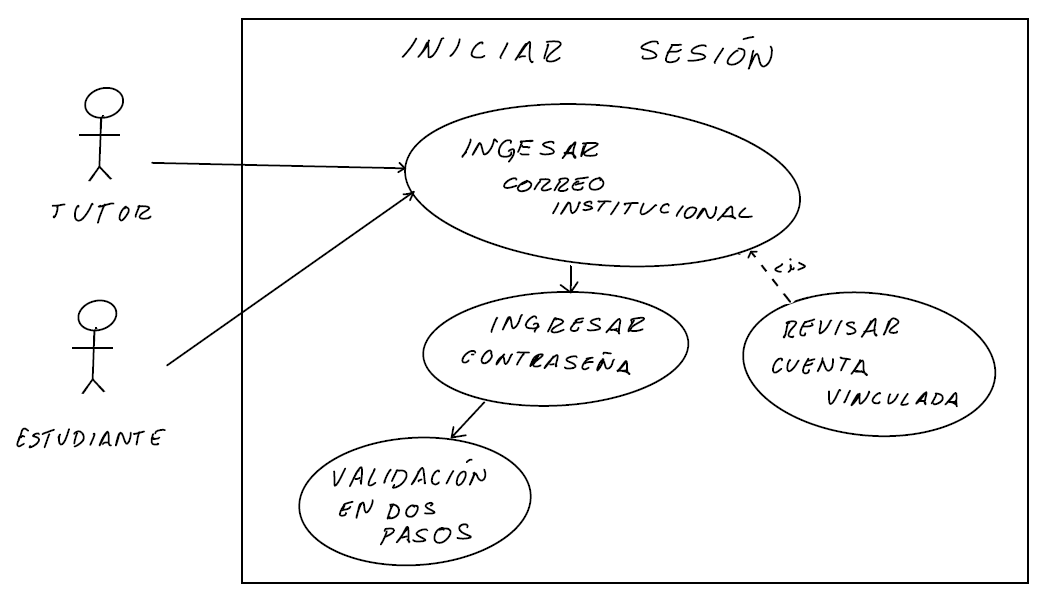 INICIAR SESIÓN
TUTOR
ESTUDIANTE
INGESAR
CORREO
INSTITUCIONAL
<i>
INGRESAR
CONTRASEÑA
REVISAR
CUENTA
VINCULADA
VALIDACIÓN
EN DOS
PASOS